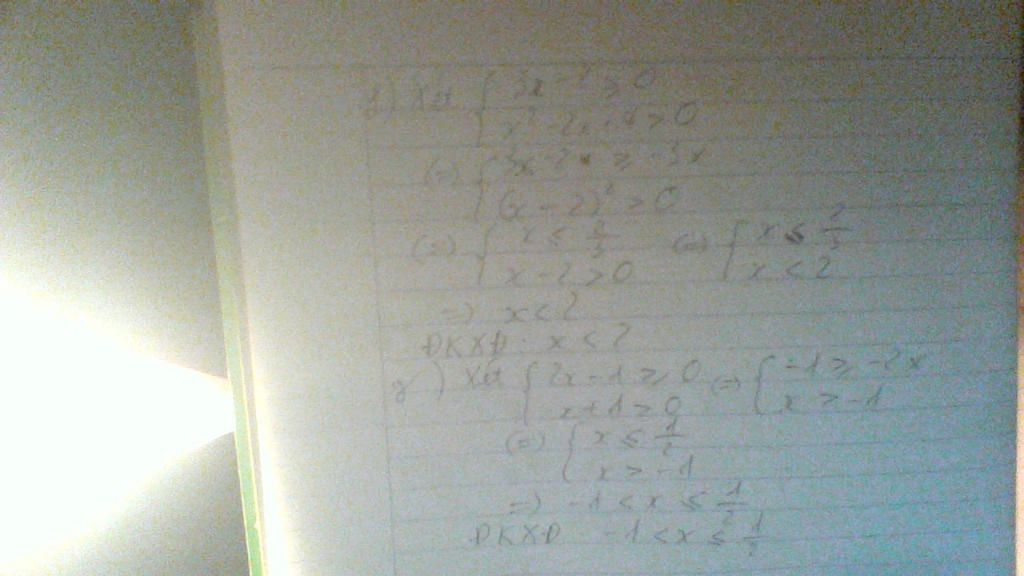 f) Xét { 3x - 2 ≥ 0
{ x² - 2x + 4 > 0
(=) { 3x - 2 ≥ -3x
{ (x - 2)² > 0
(=) { x ≤ 2/3 (=) { x ≤ 2/3
{ x - 2 > 0 { x < 2
=) x < 2
ĐKXĐ: x < 2
g) Xét { 2x - 1 ≥ 0 (=) { -1 ≥ -2x
{ x + 1 > 0 { x > -1
(=) { x ≤ 1/2
{ x > -1
=) -1 < x ≤ 1/2
ĐKXĐ -1 < x ≤ 1/2